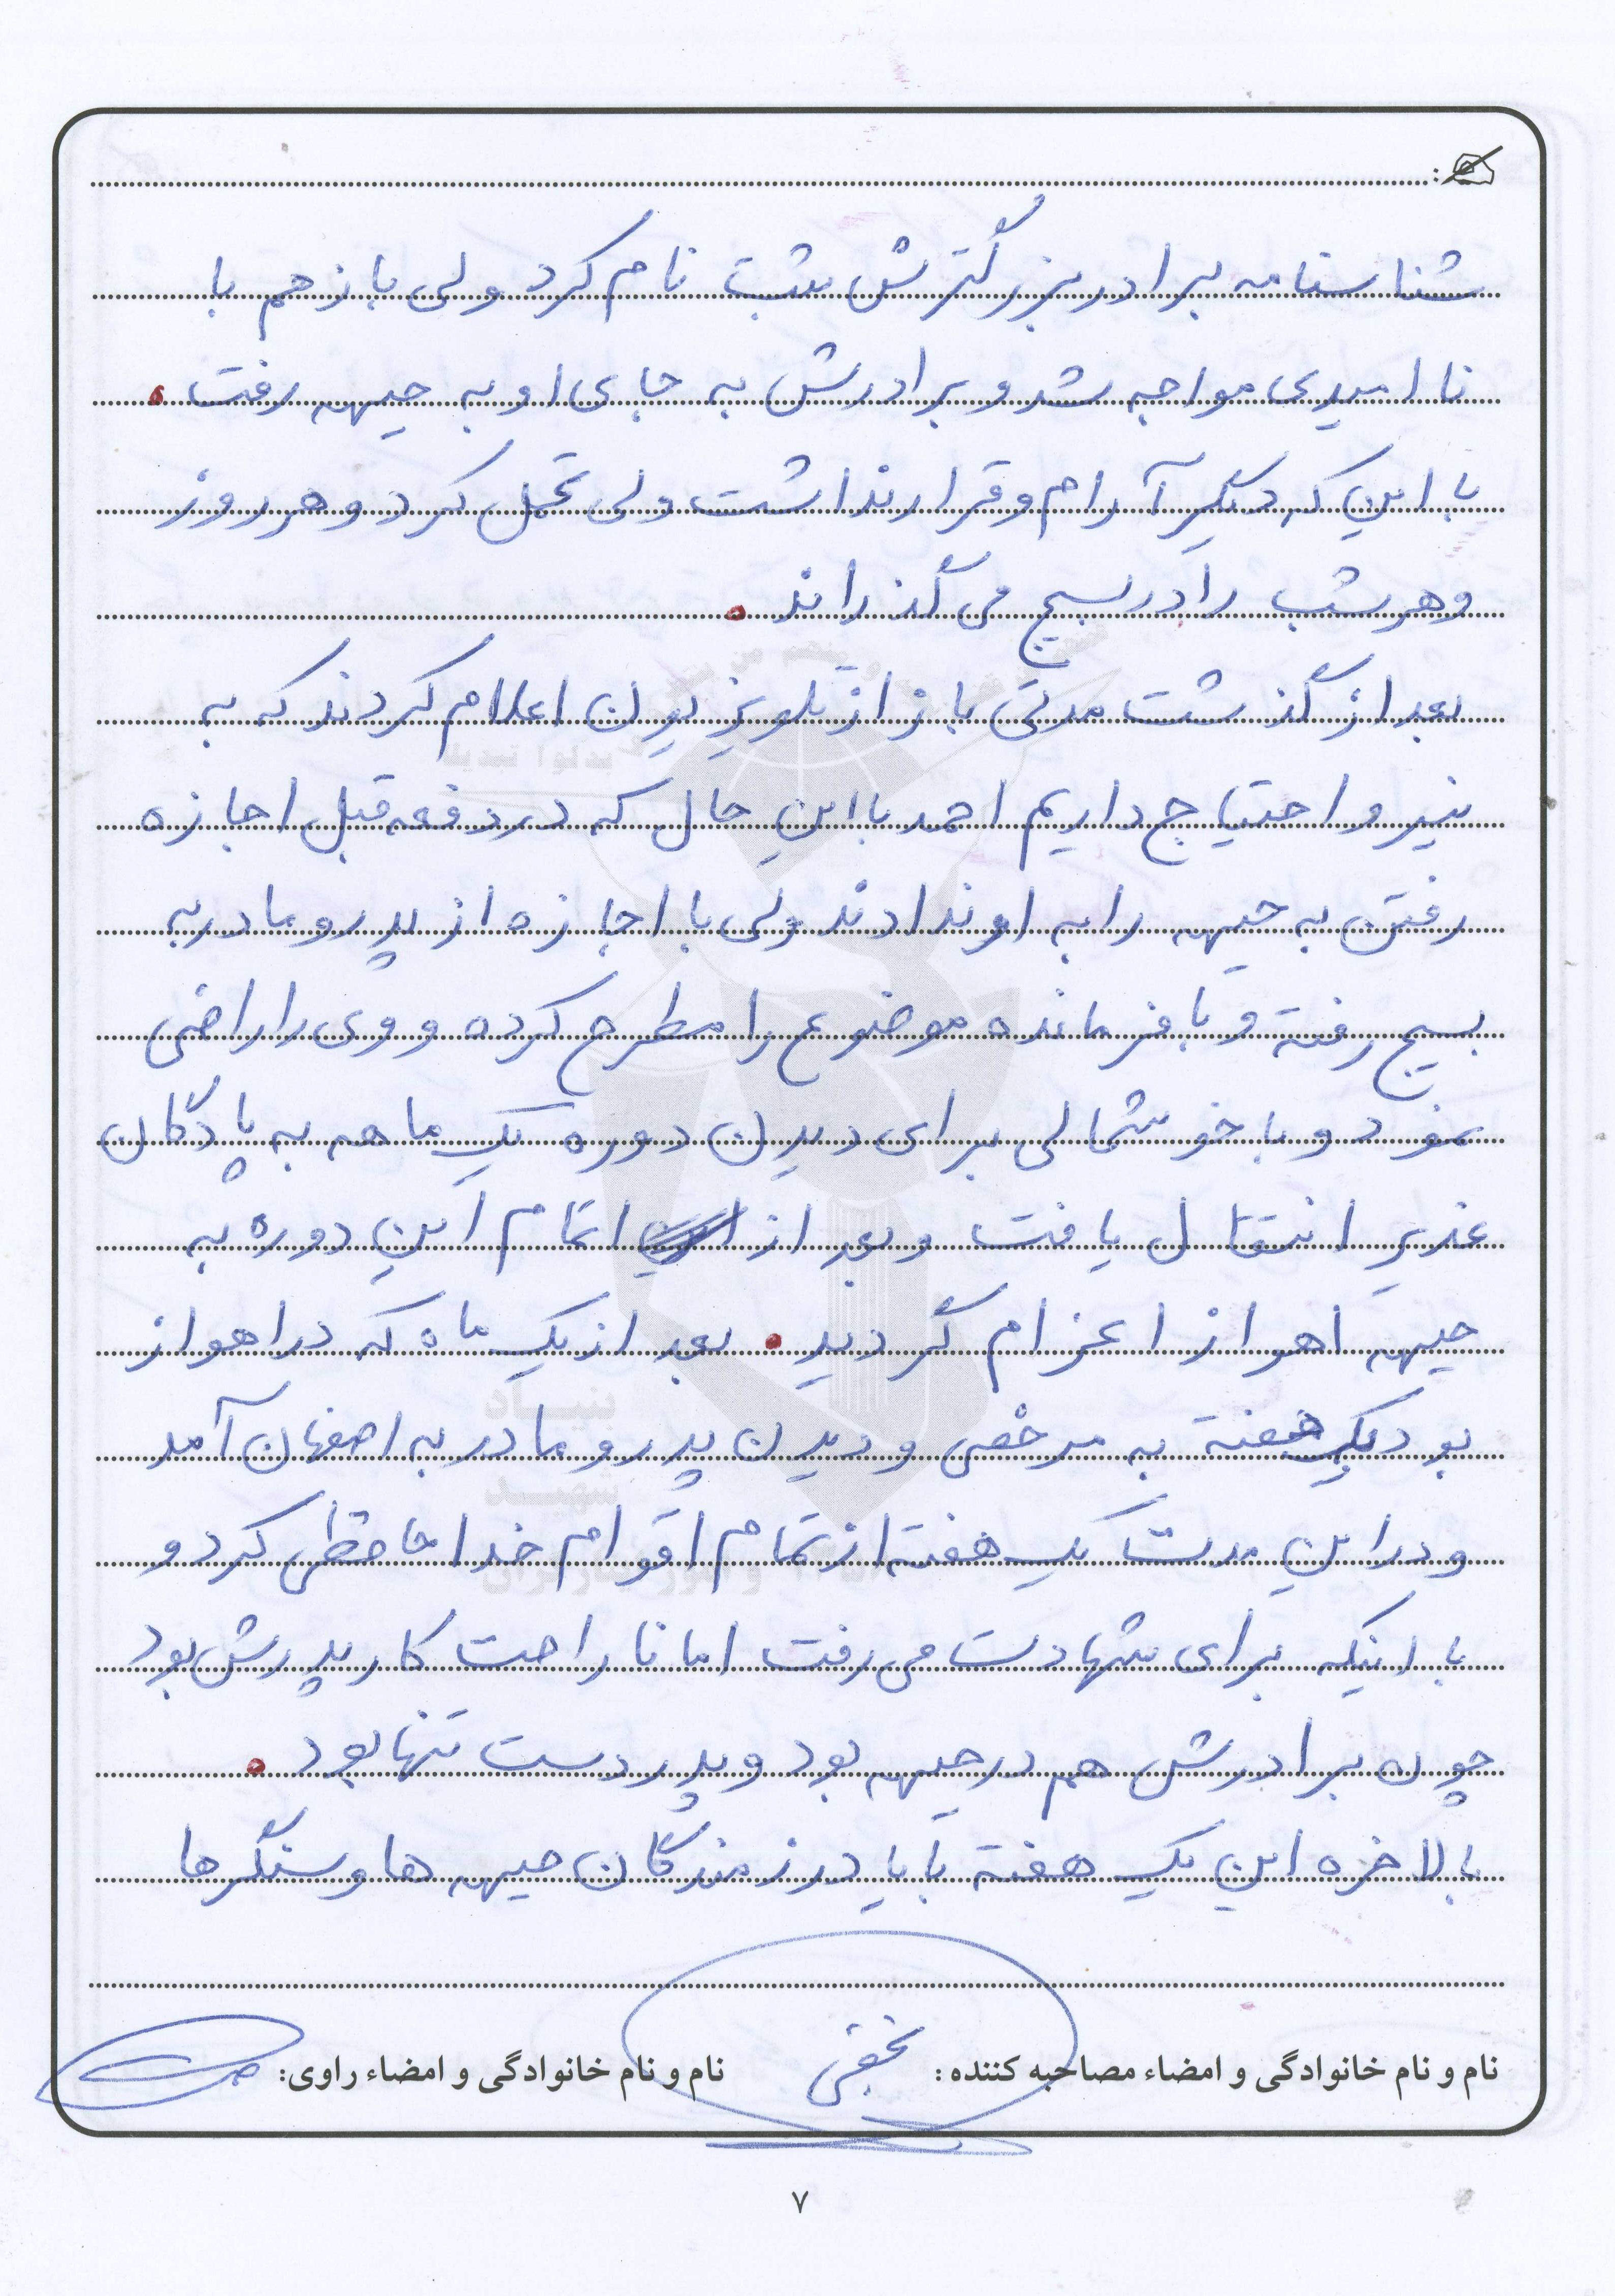 شناسنامه برادر بزرگترش ثبت نام کرد ولی باز هم با
نا امیدی مواجه شد و برادرش به جای او به جبهه رفت.
با این که دیگر آرام و قرار نداشت ولی تحمل کرد و هر روز
و هر شب را در بسیج می گذراند.
بعد از گذشت مدتی باز از تلویزیون اعلام کردند که به
نیرو احتیاج داریم احمد با این حال که در دفعه قبل اجازه
رفتن به جبهه را به او ندادند ولی با اجازه از پدر و مادر به
بسیج رفته و با فرمانده موضوع را مطرح کرده و وی را راضی
نمود و با خوشحالی برای دیدن دوره یک ماهه به پادگان
غدیر انتقال یافت و بعد از اتمام این دوره به
جبهه اهواز اعزام گردید. بعد از یک ماه که در اهواز
بود یک هفته به مرخصی و دیدن پدر و مادر به اصفهان آمد
و در این مدت یک هفته از تمام اقوام خداحافظی کرد و
با اینکه برای شهادت می رفت اما ناراحت کار پدرش بود
چون برادرش هم در جبهه بود و پدر دست تنها بود.
بالاخره این یک هفته با یاد رزمندگان جبهه ها و سنگرها
نام و نام خانوادگی و امضاء مصاحبه کننده: نام و نام خانوادگی و امضاء راوی:
۷